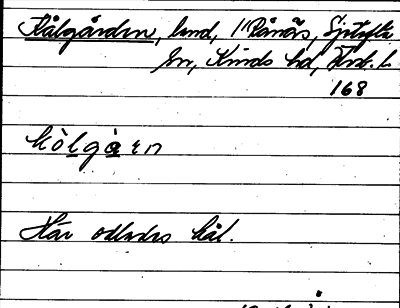 Kålgården, lund, 1/1 Rånäs, Sjötofta
sn, Kinds hd, Änt. l.
168
kòlgàrn
Här odlades kål.